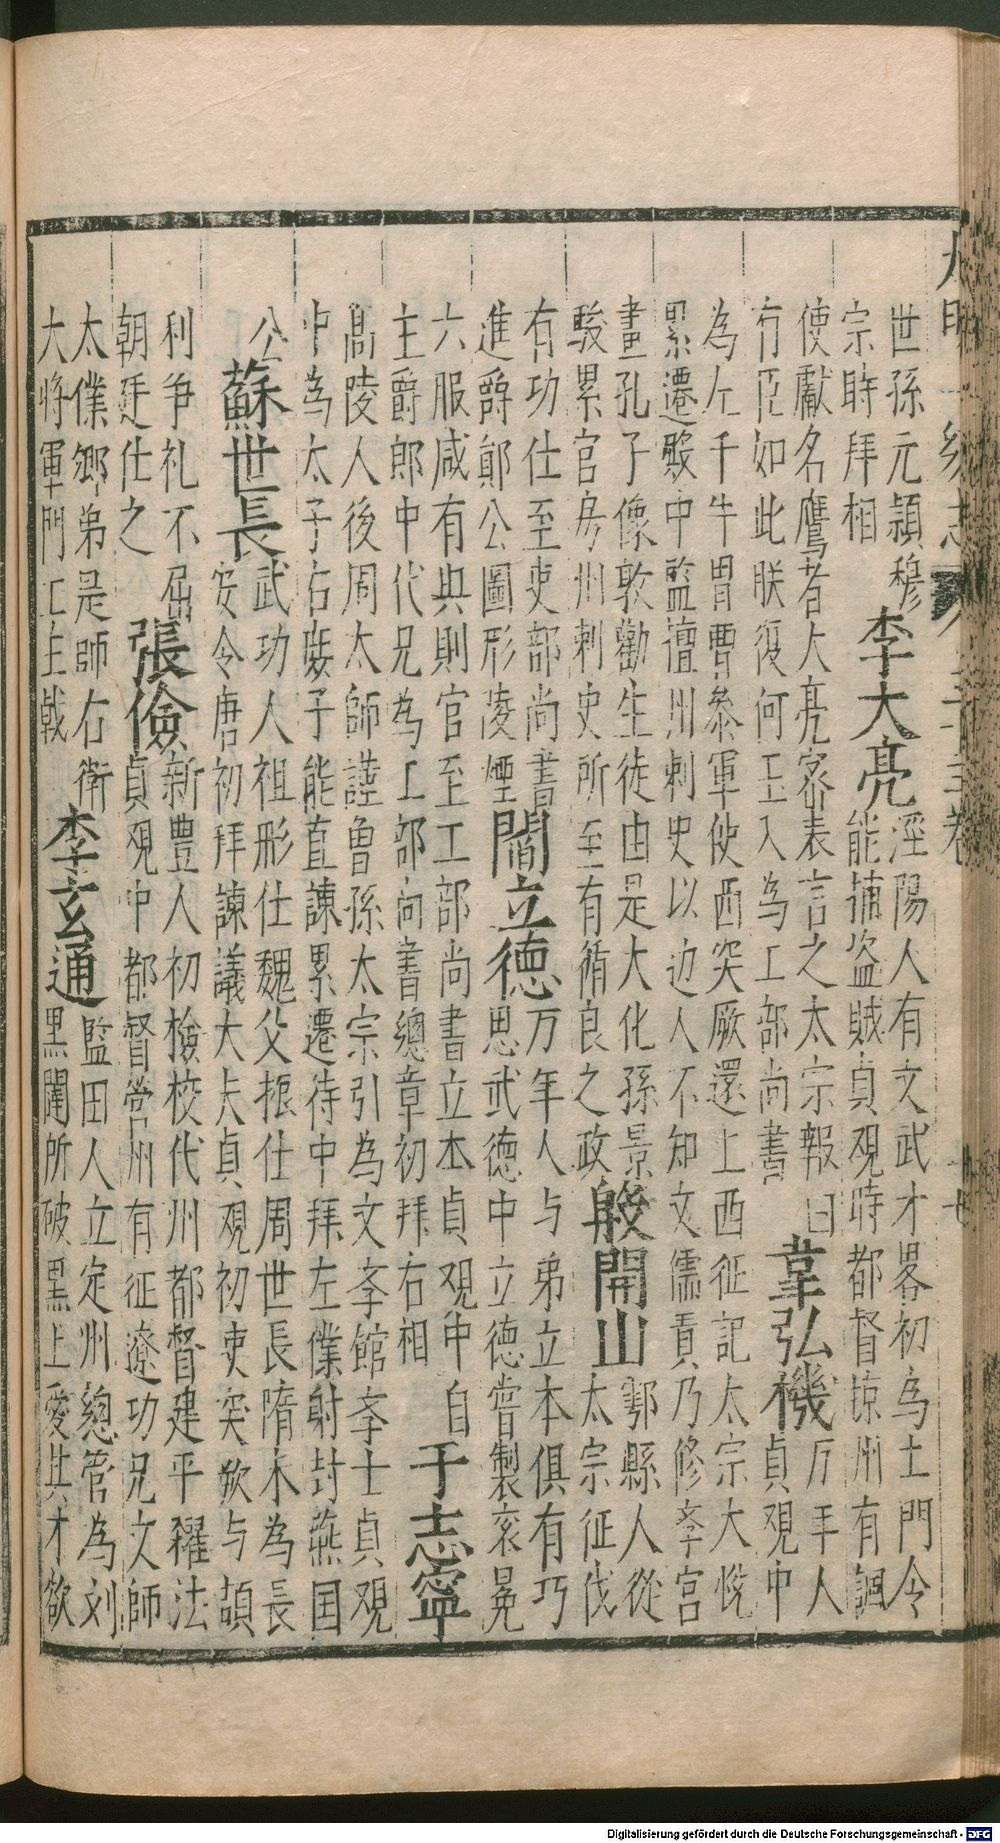 大明一統志 三十三卷 十七
世孫元頴穆
宗時拜相
李大亮
涇陽人有文武才畧初為土門令
能捕盗賊貞观時都督凉州有諷
使獻名鷹者大亮密表言之太宗報曰
有臣如此朕復何玉入為工部尚書
韋弘機
万年人
貞观中
為左千牛冑曹叅軍使西突厥還上西征記太宗大悦
累遷殿中監檀州刺史以边人不知文儒貢乃修孝宮
畫孔子像敦勸生徒由是大化孫景
駿累官房州刺史所至有循良之政
殷開山
鄠縣人從
太宗征伐
有功仕至吏部尚書
進爵鄖公圖形凌煙
閻立德
万年人与弟立本俱有巧
思武德中立德嘗製衮冕
六服咸有典則官至工部尚書立本貞观中自
主爵郎中代兄為工部尚書總章初拜右相
于志寧
高陵人後周太師謹曾孫太宗引為文孝館孝士貞观
中為太子右庶子能直諫累遷侍中拜左僕射封燕国
公
蘇世長
武功人祖彤仕魏父振仕周世長隋末為長
安令唐初拜諫議大夫貞观初吏突欮与頡
利争礼不屈
朝廷仕之
張儉
新豊人初檢校代州都督建平糴法
貞观中都督營州有征遼功兄文師
太僕卿弟是師右衛
大將軍門工主戟
李玄通
監田人立定州總管為刘
黑闥所破黑上愛其才欲
Digitalisierung gefördert durch die Deutsche Forschungsgemeinschaft - DFG